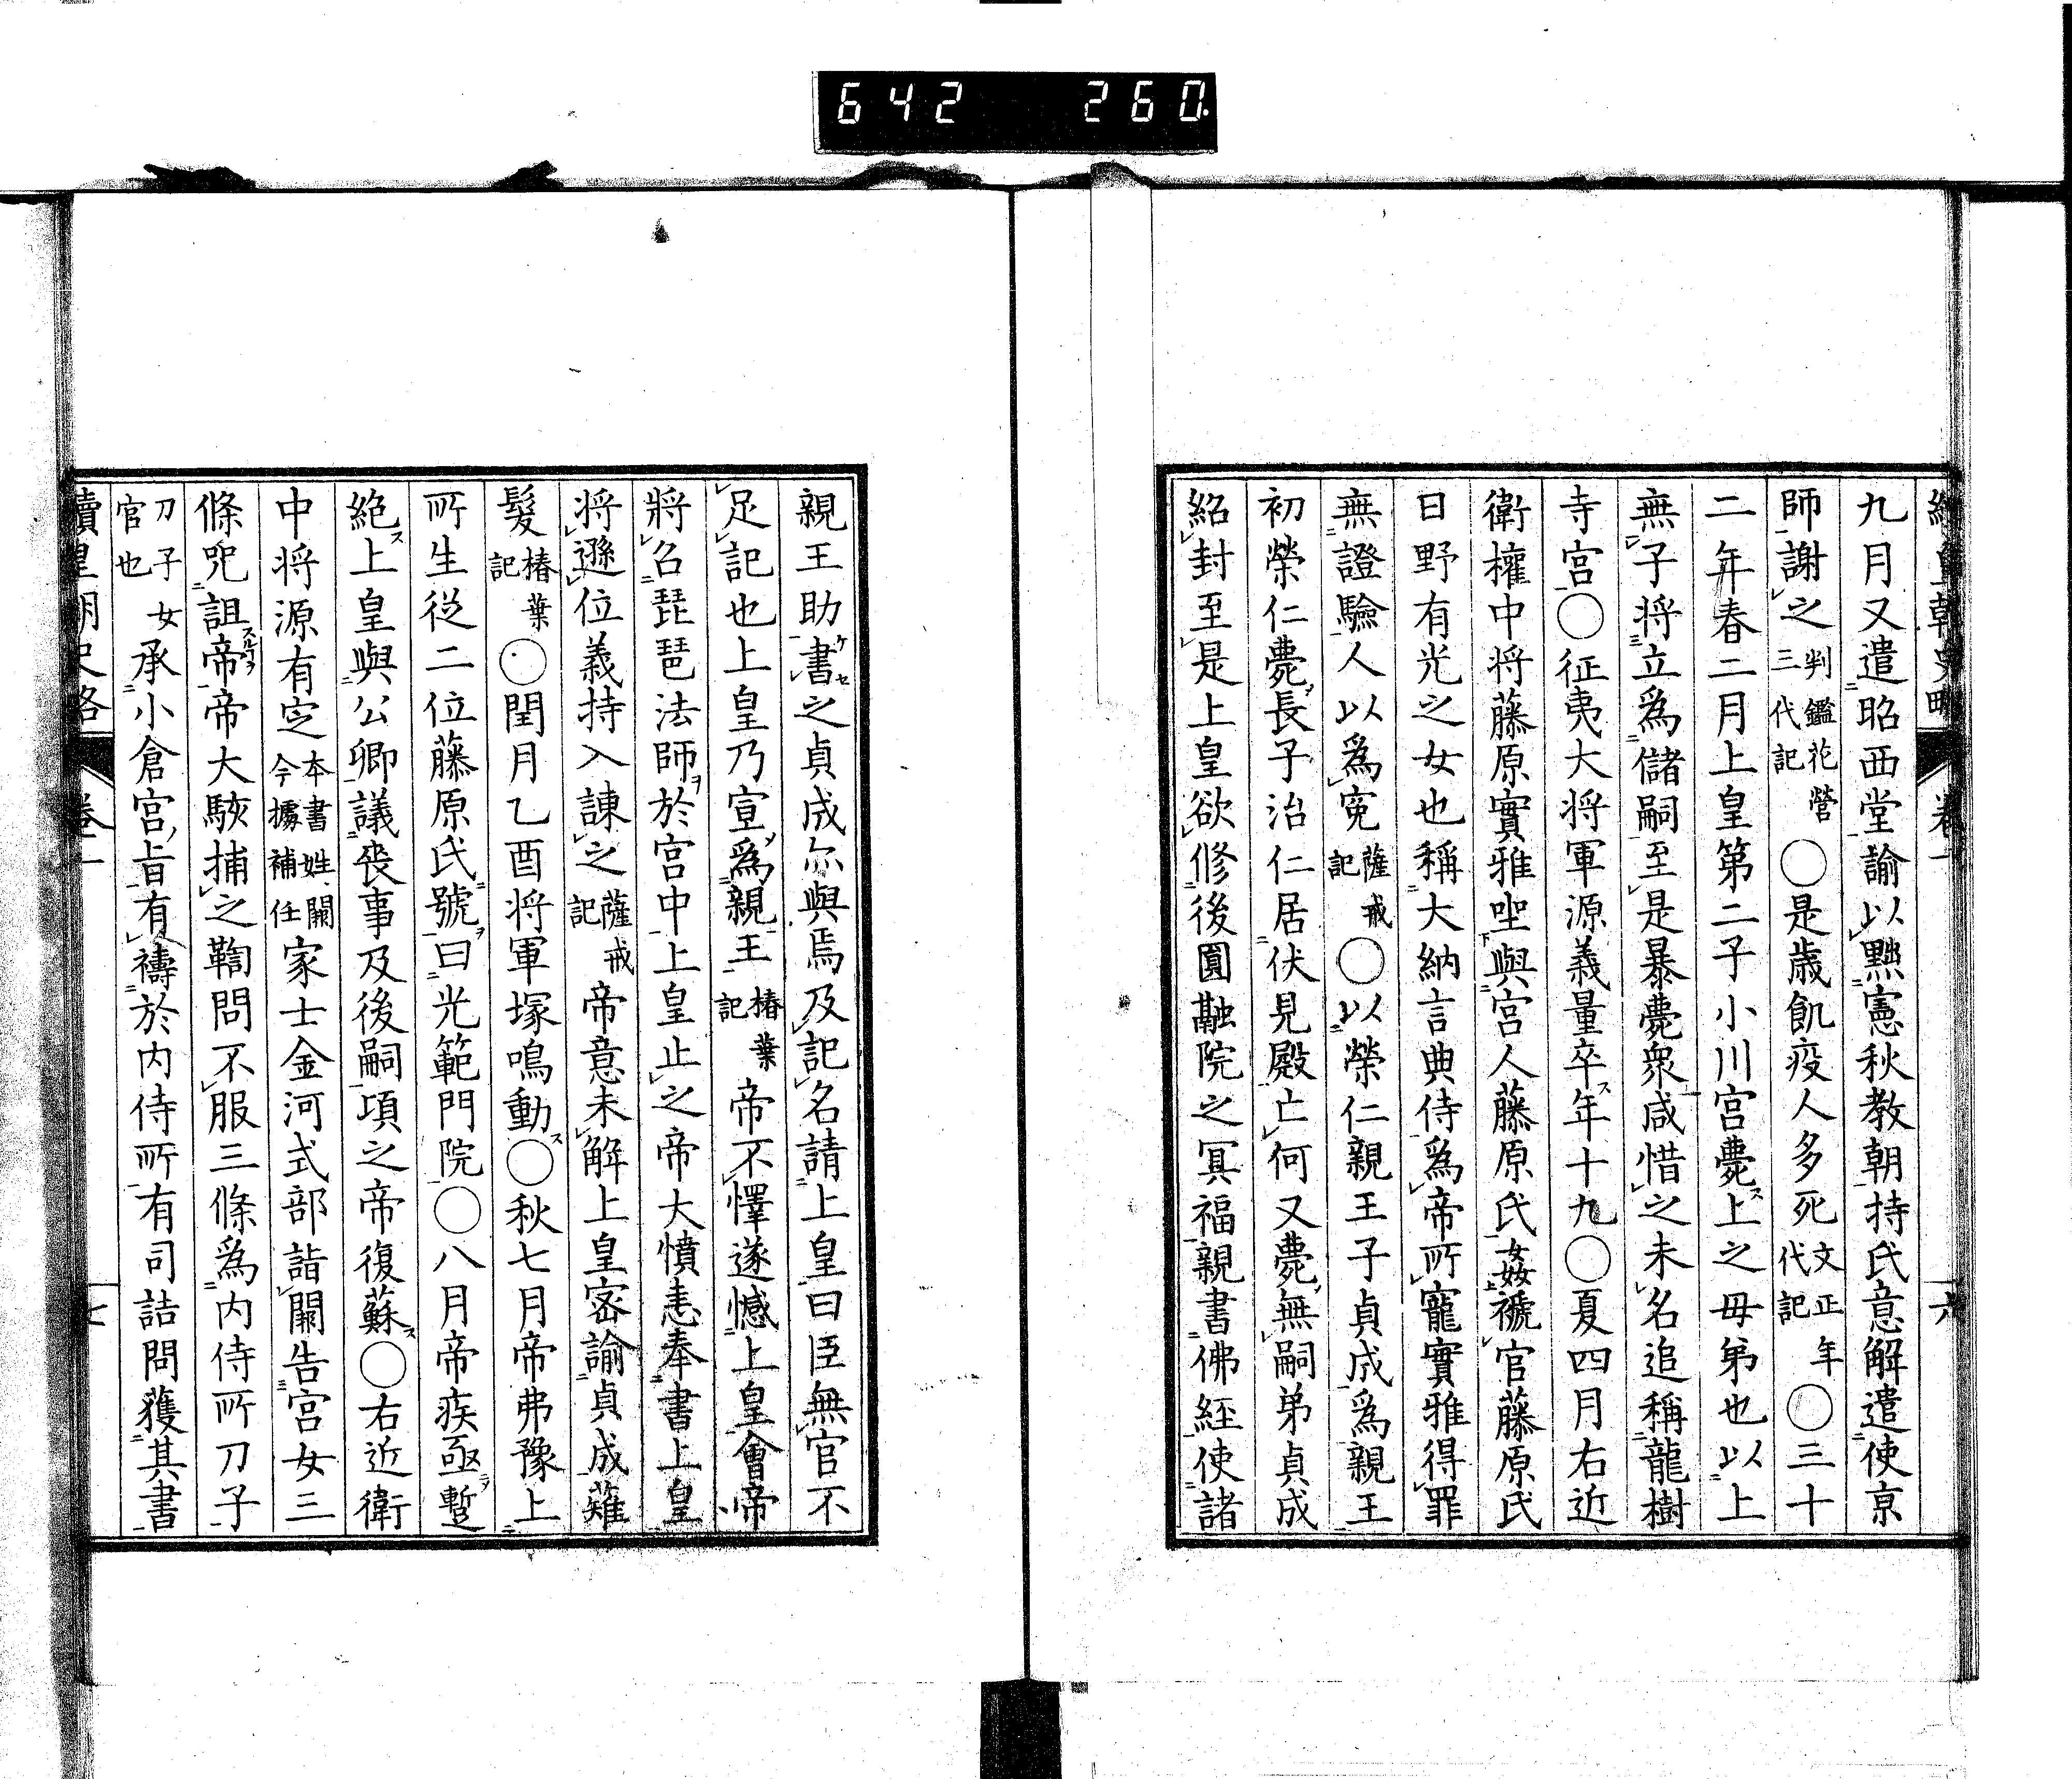 642 260
續皇朝史略 卷一 六
九月又遣昭西堂諭以黜憲秋教朝持氏意解遣使京
師謝之判鑑花營三代記〇是歳飢疫人多死文正年代記〇三十
二年春二月上皇第二子小川宮薨上之毋弟也以上
無子将立爲儲嗣至是暴薨衆咸惜之未名追稱龍樹
寺宮〇征夷大将軍源義量卒年十九〇夏四月右近
衛權中将藤原實雅坐與宮人藤原氏姦褫官藤原氏
日野有光之女也稱大納言典侍爲帝所寵實雅得罪
無證驗人以爲寃薩戒記〇以榮仁親王子貞成爲親王
初榮仁薨長子治仁居伏見殿亡何又薨無嗣弟貞成
紹封至是上皇欲修後圓融院之冥福親書佛經使諸
親王助書之貞成亦與焉及記名請上皇曰臣無官不
足記也上皇乃宣爲親王椿葉記帝不懌遂憾上皇會帝
將召琵琶法師於宮中上皇止之帝大憤恚奉書上皇
将遜位義持入諌之薩戒記帝意未解上皇密諭貞成薙
髮椿葉記〇閏月乙酉将軍塚鳴動〇秋七月帝弗豫上
所生從二位藤原氏號曰光範門院〇八月帝疾亟暫
絶上皇與公卿議喪事及後嗣項之帝復蘇〇右近衛
中将源有定本書姓闕今據補任家士金河式部詣闕告宮女三
條呪詛帝帝大駭捕之鞫問不服三條爲内侍所刀子
刀子女官也承小倉宮旨有禱於内侍所有司詰問獲其書
續皇朝史略 卷一 七